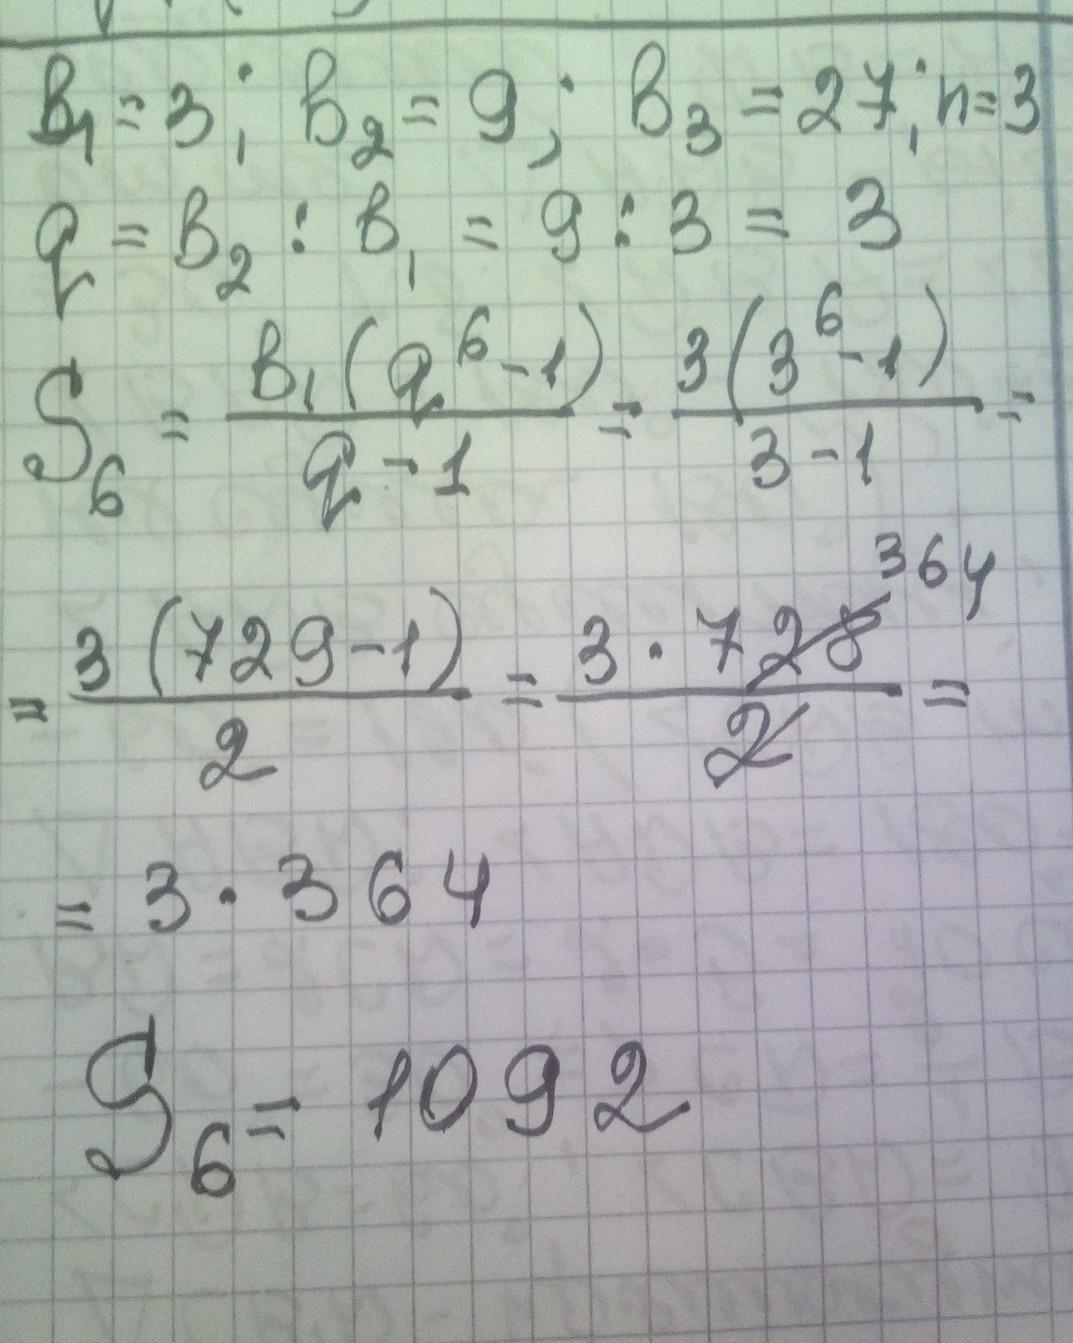 в₁ = 3; в₂ = 9; в₃ = 27; n=3
q = в₂ : в₁ = 9 : 3 = 3
S₆ = в₁(q⁶-1)/(q-1) = 3(3⁶-1)/(3-1) =
= 3(729-1)/2 = 3·728/2 = 364
= 3·364
S₆ = 1092